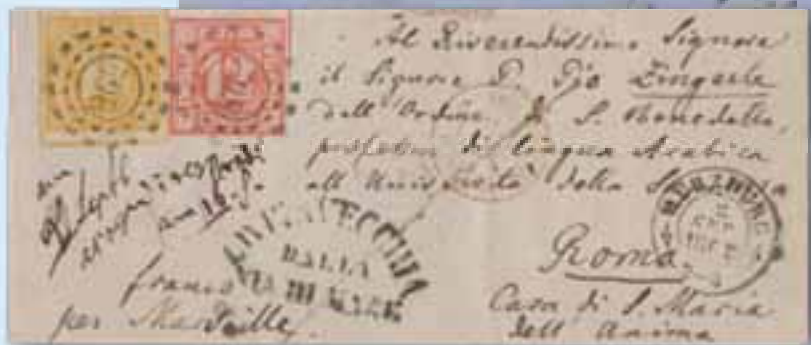 Al Riverendissimo Signore
il Signore P. Pio Zingerle
dell'Ordine di S. Benedetto,
professore di lingua Arabica
all'Università della
Roma
Casa di S. Maria
dell'Anima
franco
per Marseille
CIVITAVECCHIA
DALLA
VIA DI MARE
12
WÜRZBURG
SEP